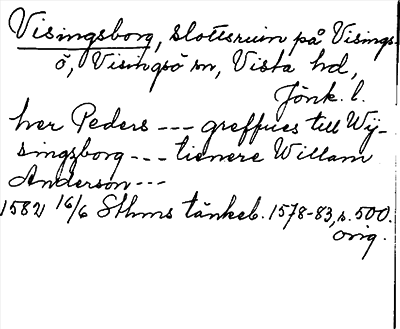 Visingsborg, slottsruin på Visings-
ö, Visingsö sn, Vista hd,
Jönk. l.
her Peders --- greffues till Wij-
singzborg --- tienere Willam
Anderson ---
1582 16/6 Sthms tänkeb. 1578-83, s. 500.
orig.